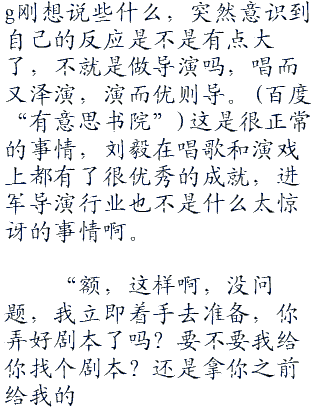 g刚想说些什么，突然意识到
自己的反应是不是有点大
了，不就是做导演吗，唱而
又泽演，演而优则导。(百度
“有意思书院”)这是很正常
的事情，刘毅在唱歌和演戏
上都有了很优秀的成就，进
军导演行业也不是什么太惊
讶的事情啊。
“额，这样啊，没问
题，我立即着手去准备，你
弄好剧本了吗？要不要我给
你找个剧本？还是拿你之前
给我的